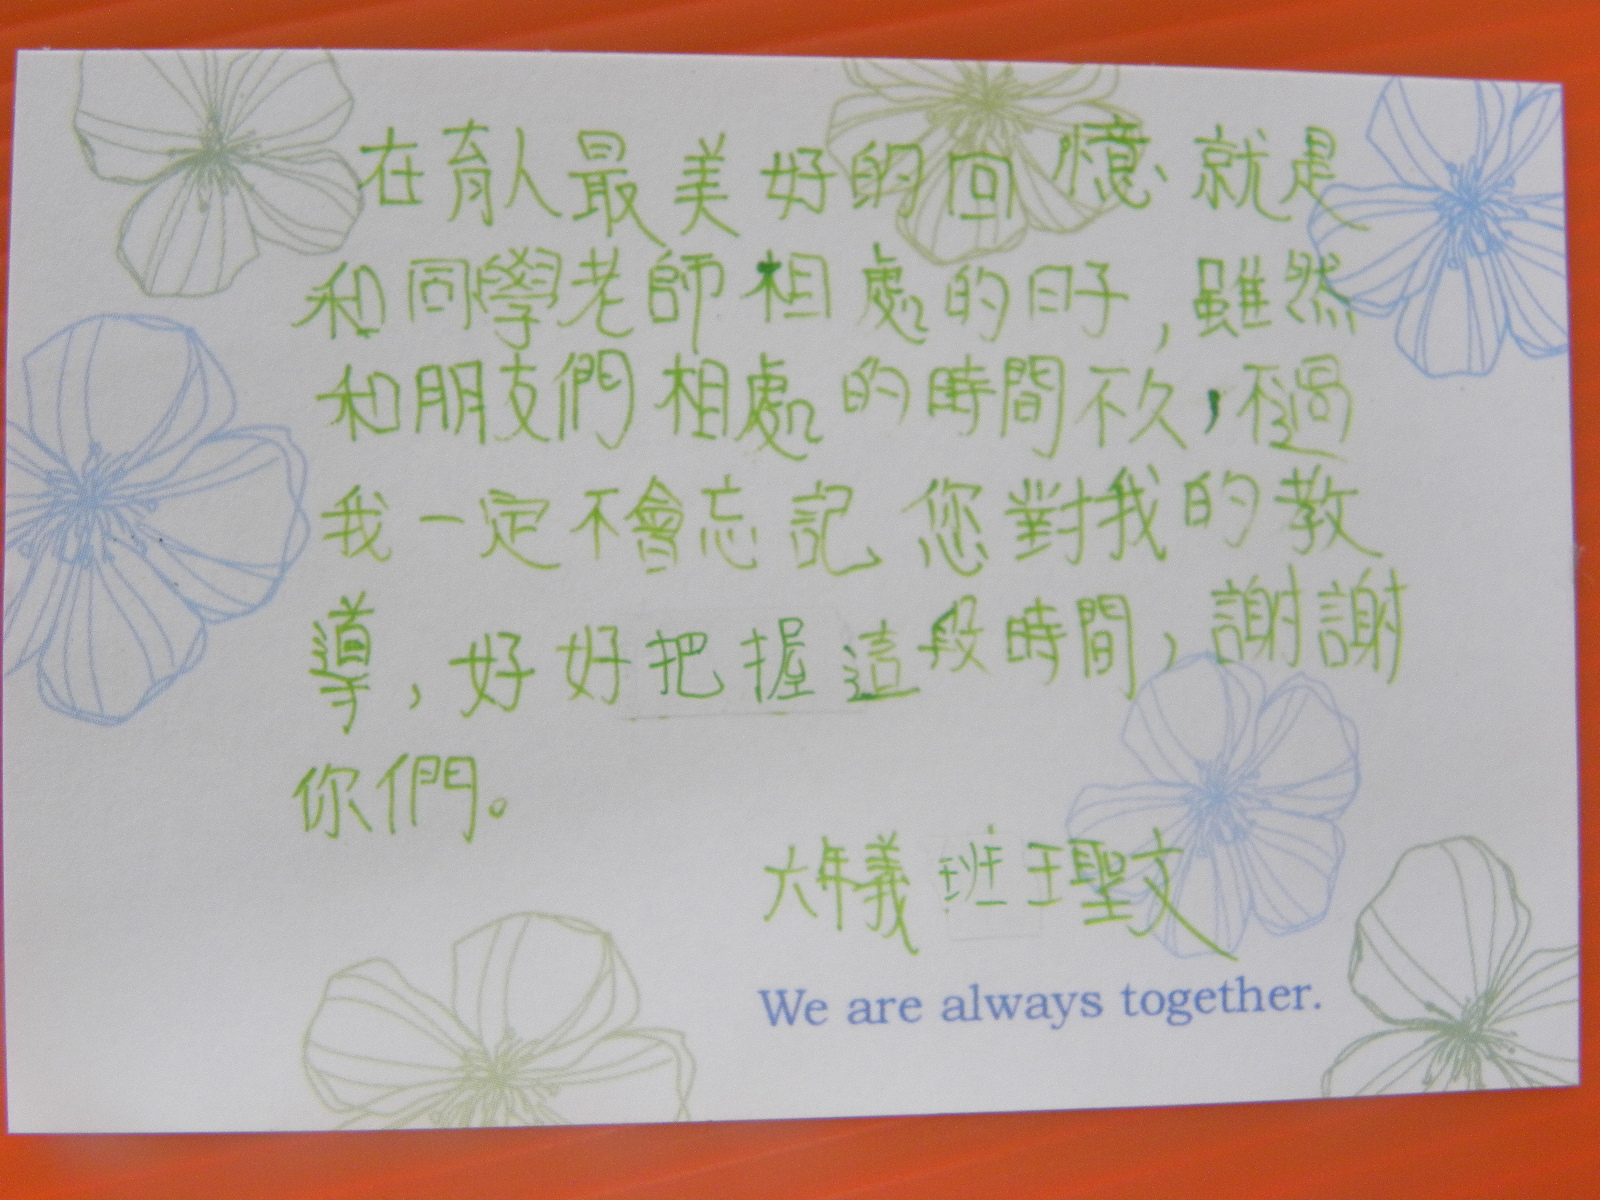 在育人最美好的回憶就是
和同學老師相處的日子,雖然
和朋友們相處的時間不久,不過
我一定不會忘記您對我的教
導,好好把握這段時間,謝謝
你們。
六年義班王聖文
We are always together.